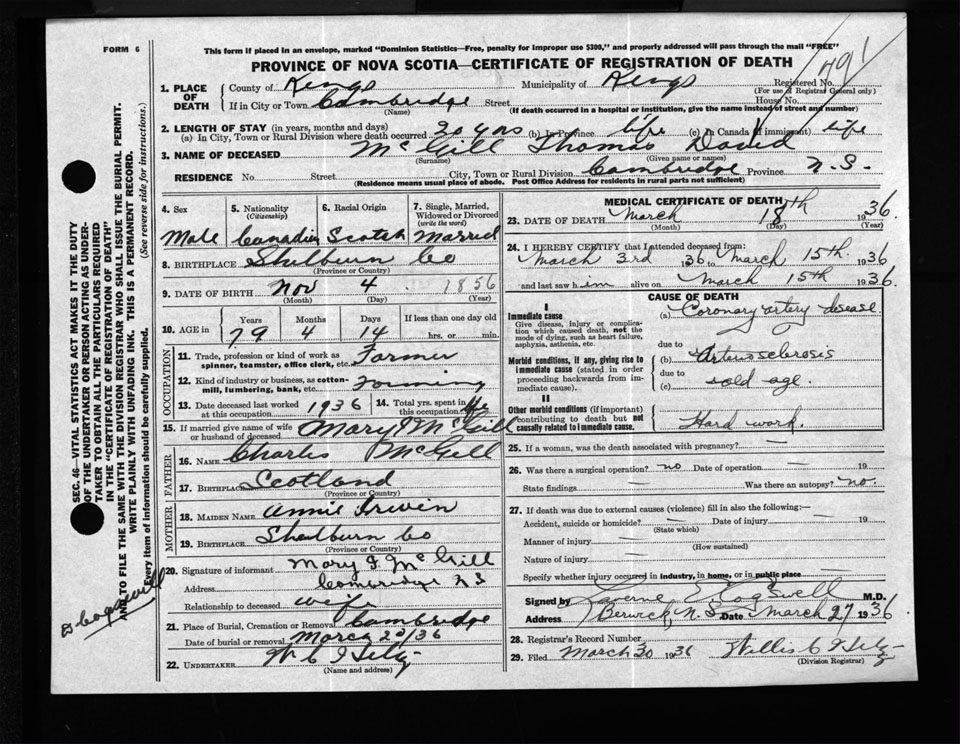 FORM 6
This form if placed in an envelope, marked "Dominion Statistics—Free, penalty for improper use $300," and properly addressed will pass through the mail "FREE"
PROVINCE OF NOVA SCOTIA—CERTIFICATE OF REGISTRATION OF DEATH
1. PLACE OF DEATH
County of Kings Municipality of Kings Registered No.
(For use of Registrar General only)
If in City or Town Cambridge Street House No.
(Name) (If death occurred in a hospital or institution, give the name instead of street and number)
2. LENGTH OF STAY (in years, months and days)
(a) In City, Town or Rural Division where death occurred 20 yrs (b) in Province life (c) in Canada (if immigrant) life
3. NAME OF DECEASED McGill Thomas David
(Surname) (Given name or names)
RESIDENCE No. Street City, Town or Rural Division Cambridge Province N.S.
(Residence means usual place of abode. Post Office Address for residents in rural parts not sufficient)
4. Sex 5. Nationality (Citizenship) 6. Racial Origin 7. Single, Married, Widowed or Divorced (write the word)
Male Canadian Scotch Married
8. BIRTHPLACE Shilburn Co
(Province or Country)
9. DATE OF BIRTH Nov 4 1856
(Month) (Day) (Year)
10. AGE in Years Months Days If less than one day old
79 4 14 hrs. or min.
OCCUPATION
11. Trade, profession or kind of work as spinner, teamster, office clerk, etc. Farmer
12. Kind of industry or business, as cotton-mill, lumbering, bank, etc. Farming
13. Date deceased last worked at this occupation 1936 14. Total yrs. spent in this occupation life
15. If married give name of wife or husband of deceased Mary J McGill
FATHER
16. NAME Charles McGill
17. BIRTHPLACE Scotland
(Province or Country)
MOTHER
18. MAIDEN NAME Annie Irwin
19. BIRTHPLACE Shelburn Co
(Province or Country)
20. Signature of informant Mary J McGill
Address Cambridge N S
Relationship to deceased wife
21. Place of Burial, Cremation or Removal Cambridge
Date of burial or removal March 20/36
22. UNDERTAKER
(Name and address)
MEDICAL CERTIFICATE OF DEATH
23. DATE OF DEATH March 18th 1936.
(Month) (Day) (Year)
24. I HEREBY CERTIFY that I attended deceased from:
March 3rd 1936 to March 15th 1936
and last saw him alive on March 15th 1936
CAUSE OF DEATH
I
Immediate cause
Give disease, injury or complication which caused death, not the mode of dying, such as heart failure, asphyxia, asthenia, etc.
(a) Coronary artery disease
due to
Morbid conditions, if any, giving rise to immediate cause (stated in order proceeding backwards from immediate cause).
(b) Arteriosclerosis
due to
(c) old age.
II
Other morbid conditions (if important) contributing to death but not causally related to immediate cause.
Hard work.
25. If a woman, was the death associated with pregnancy?
26. Was there a surgical operation? no Date of operation 19
State findings Was there an autopsy? no.
27. If death was due to external causes (violence) fill in also the following:—
Accident, suicide or homicide? Date of injury 19
(State which)
Manner of injury
(How sustained)
Nature of injury
Specify whether injury occurred in industry, in home, or in public place
Signed by Laverne E Cogswell M.D.
Address Berwick N.S. Date March 27 1936
28. Registrar's Record Number
29. Filed March 30 1936 Willis
(Division Registrar)
SEC. 46—VITAL STATISTICS ACT MAKES IT THE DUTY OF THE UNDERTAKER OR PERSON ACTING AS UNDERTAKER TO OBTAIN ALL THE PARTICULARS REQUIRED IN THE "CERTIFICATE OF REGISTRATION OF DEATH" AND TO FILE THE SAME WITH THE DIVISION REGISTRAR WHO SHALL ISSUE THE BURIAL PERMIT.
WRITE PLAINLY WITH UNFADING INK. THIS IS A PERMANENT RECORD.
Every item of information should be carefully supplied. (See reverse side for instructions.)
D Cogswell